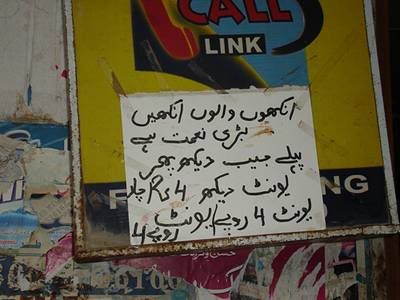 CALL
LINK
انکھوں والوں انکھیں
بڑی نعمت ہے
پہلے جیب دیکھو پھر
یونٹ دیکھو 4 کا چار
یونٹ 4 روپے/یونٹ
روپے 4
NG